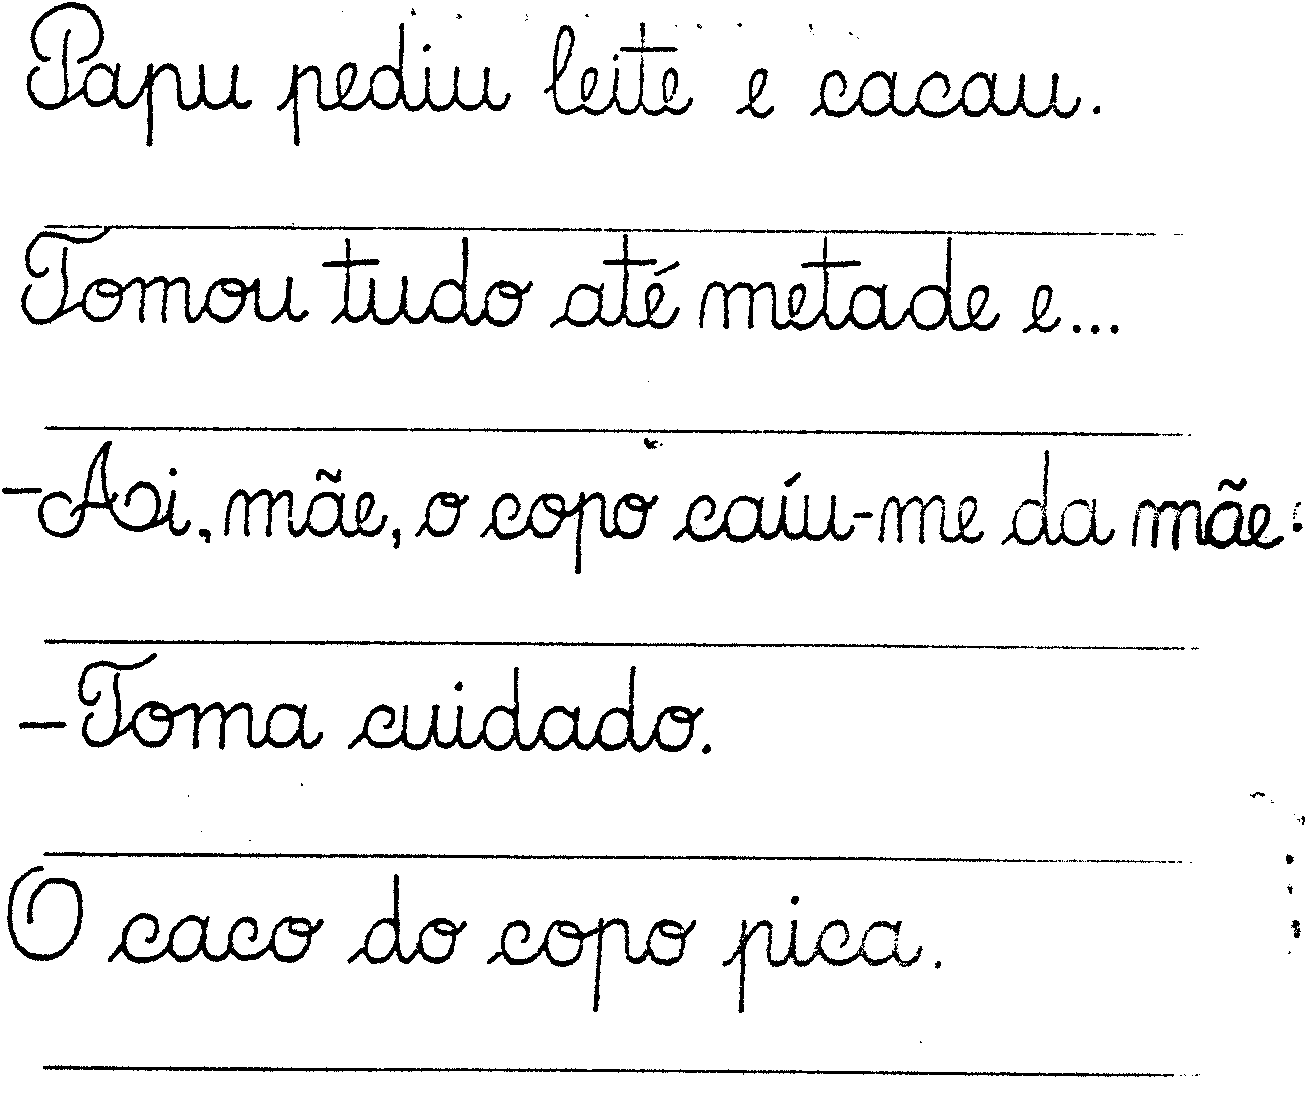 Papu pediu leite e cacau.
Tomou tudo até metade e...
-Ai, mãe, o copo caíu-me da mãe!
-Toma cuidado.
O caco do copo pica.